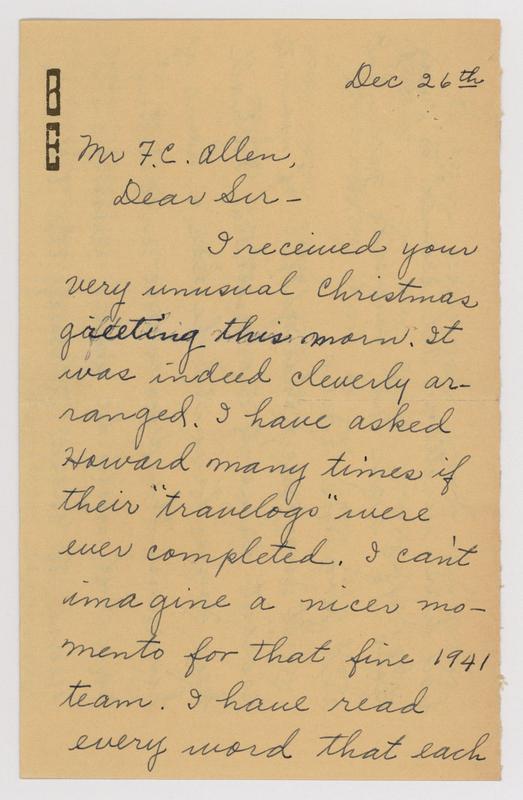 Dec 26th
BE
Mr F.C. Allen,
Dear Sir -
I received your
very unusual Christmas
greeting this morn. It
was indeed cleverly ar-
ranged. I have asked
Howard many times if
their "travelogs" were
ever completed. I can't
imagine a nicer mo-
mento for that fine 1941
team. I have read
every word that each